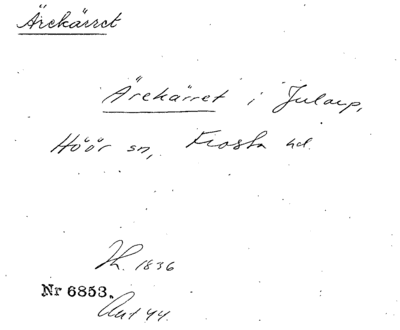 Ärekärret
Ärekärret i Jularp,
Höör sn, Frosta hd.
1836
Nr 6853.
44.